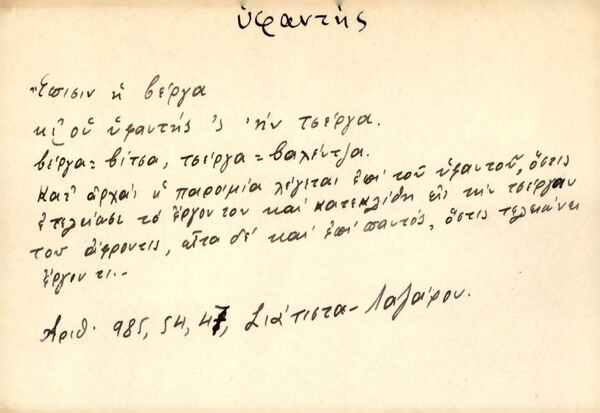 ὑφαντής
Ἔπισιν ἡ βέργα
κι̮ οὑ ὑφαντής 'ς 'ην τσέργα.
βέργα = βίτσα, τσέργα = βαλέντζα.
Κατ' ἀρχὰς ἡ παροιμία λέγεται ἐπὶ τοῦ ὑφαντοῦ, ὅστις
ἐτελείωσε τὸ ἔργον του καὶ κατεκλίθη εἰς τὴν τσέργαν
του ἄφροντις, εἶτα δὲ καὶ ἐπὶ παντός, ὅστις τελειώνει
ἔργον τι.-
Ἀριθ. 985, 54, 47, Σιάτιστα - Λαζάρου.